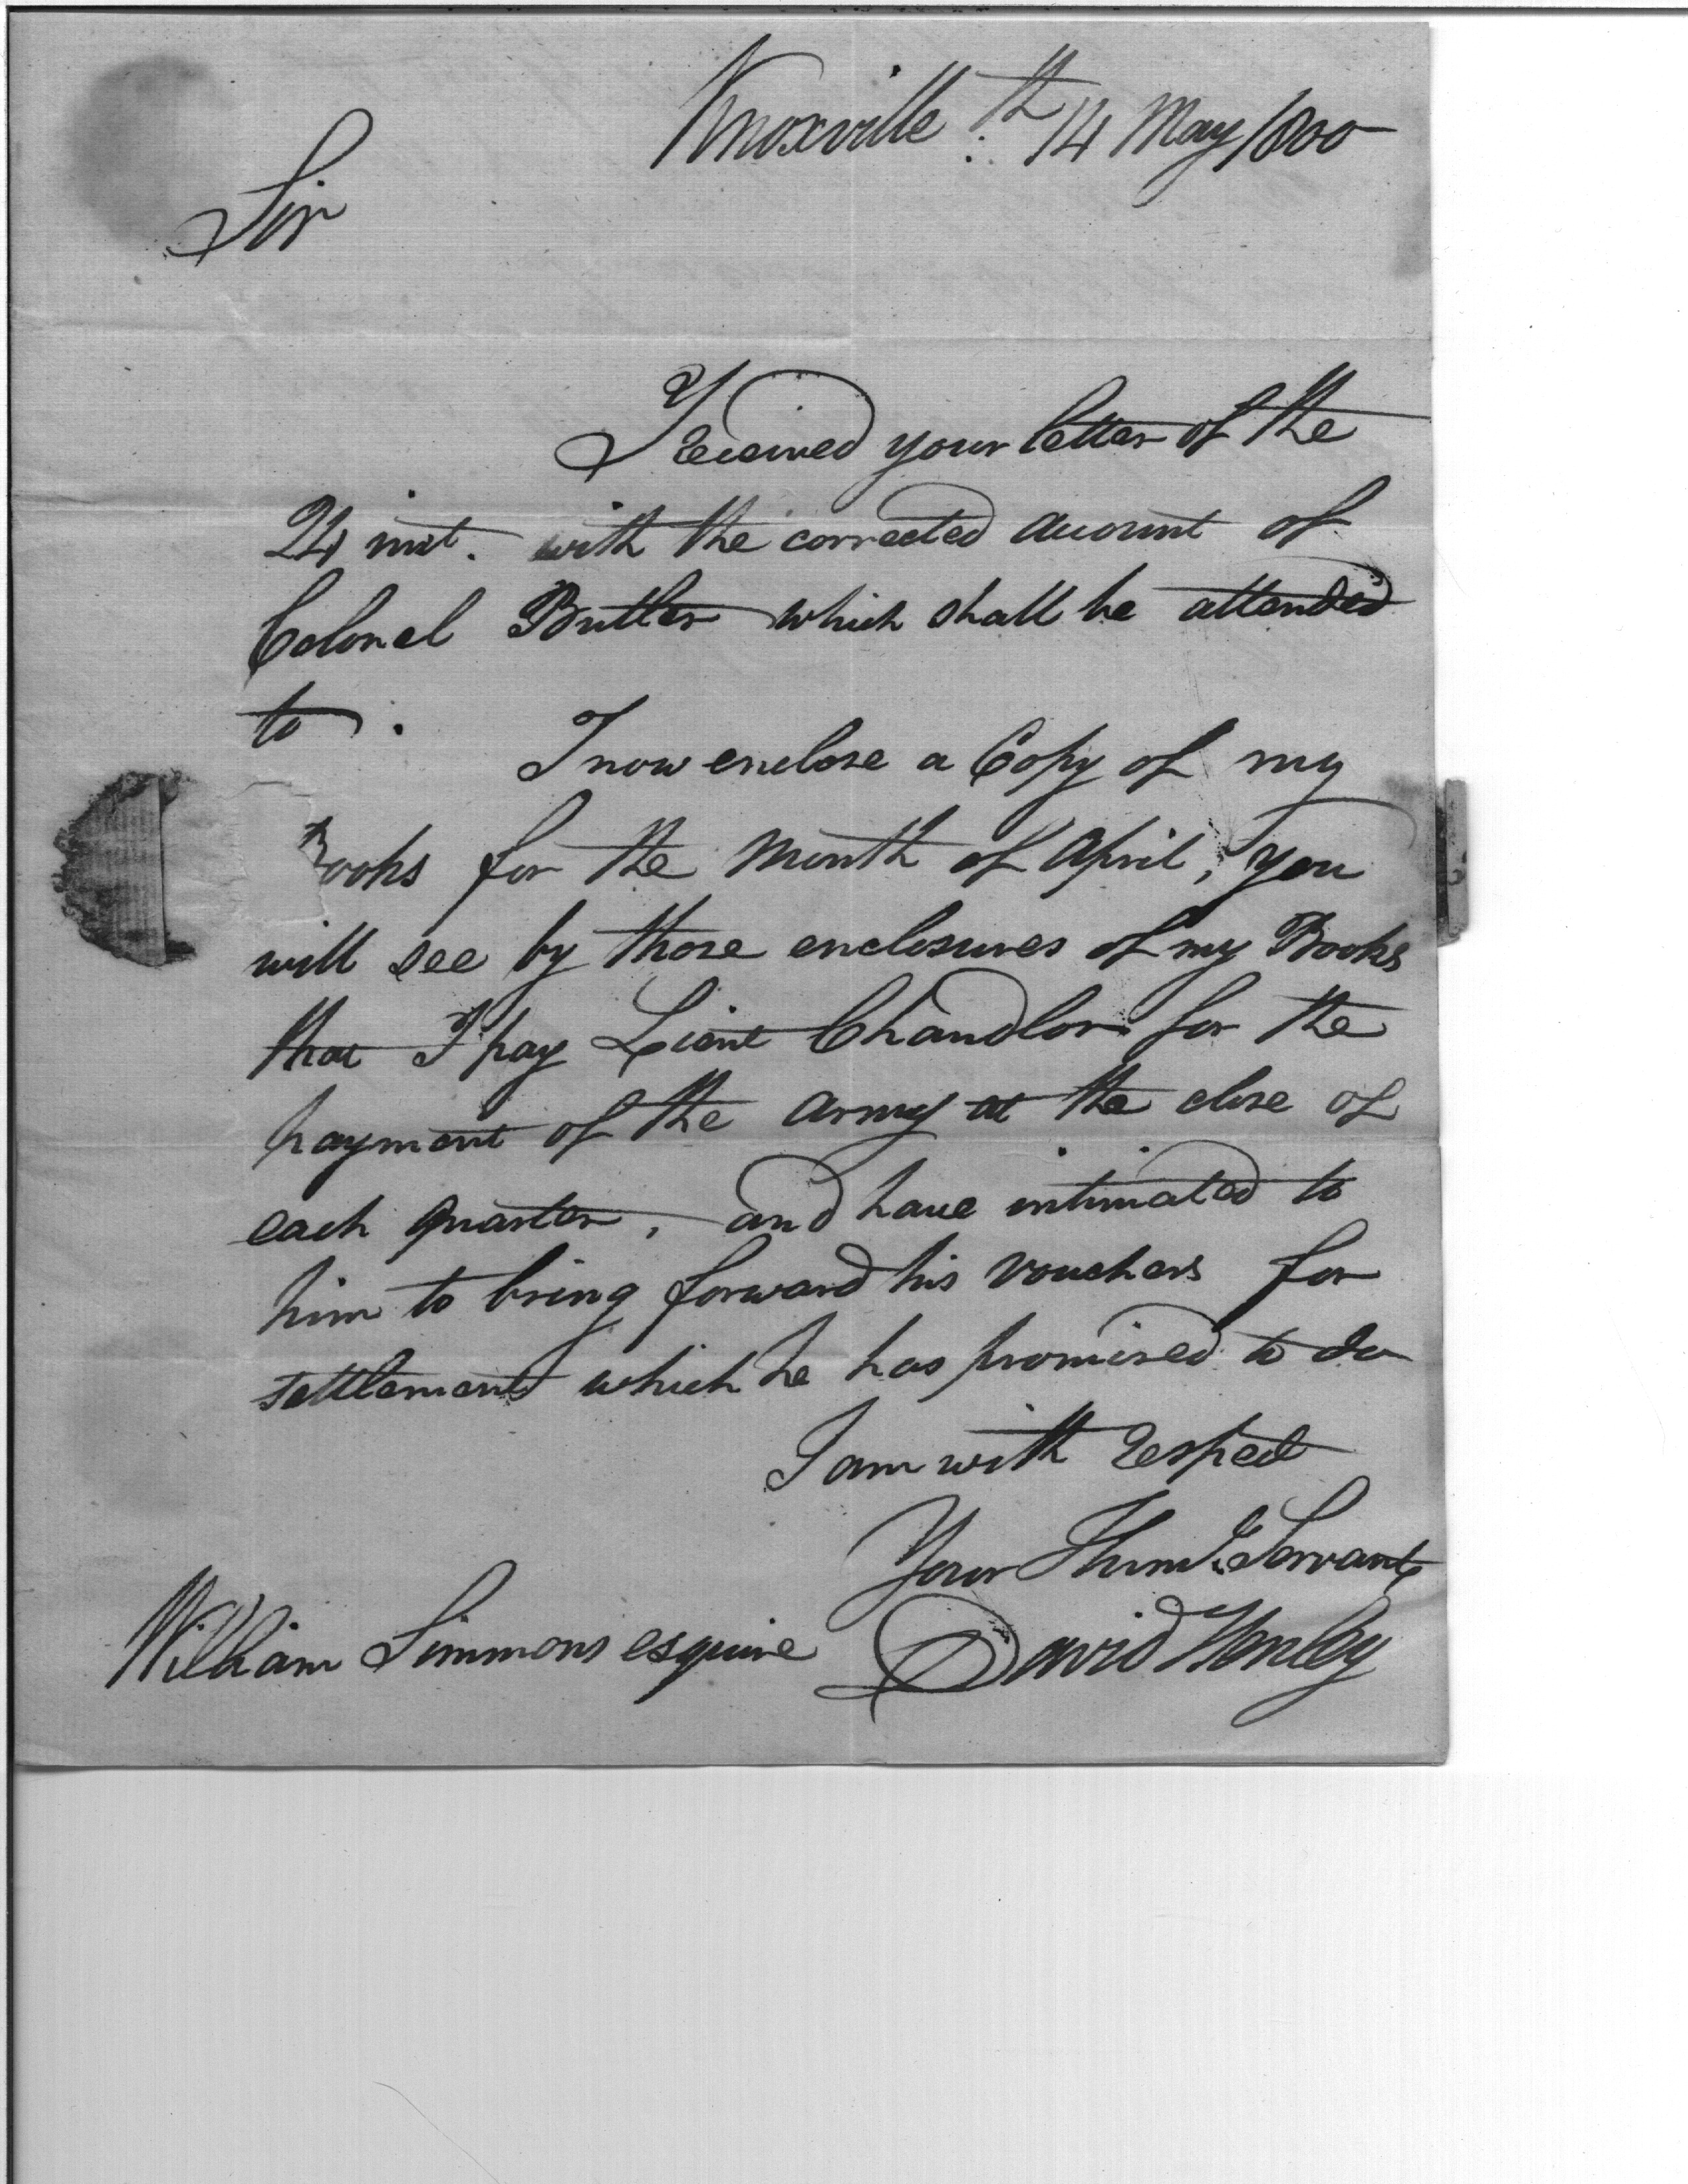 Knoxville th 14 May 1800
Sir
I received your letter of the
24 inst. with the corrected account of
Colonel Butler which shall be attended
to.
I now enclose a Copy of my
Books for the month of April, you
will see by those enclosures of my Books
that I pay Lieut Chandlor for the
payment of the army at the close of
each quarter, and have intimated to
him to bring forward his vouchers for
settlement which he has promised to do
I am with respect
Your Humb. Servant
David Henley
William Simmons esquire